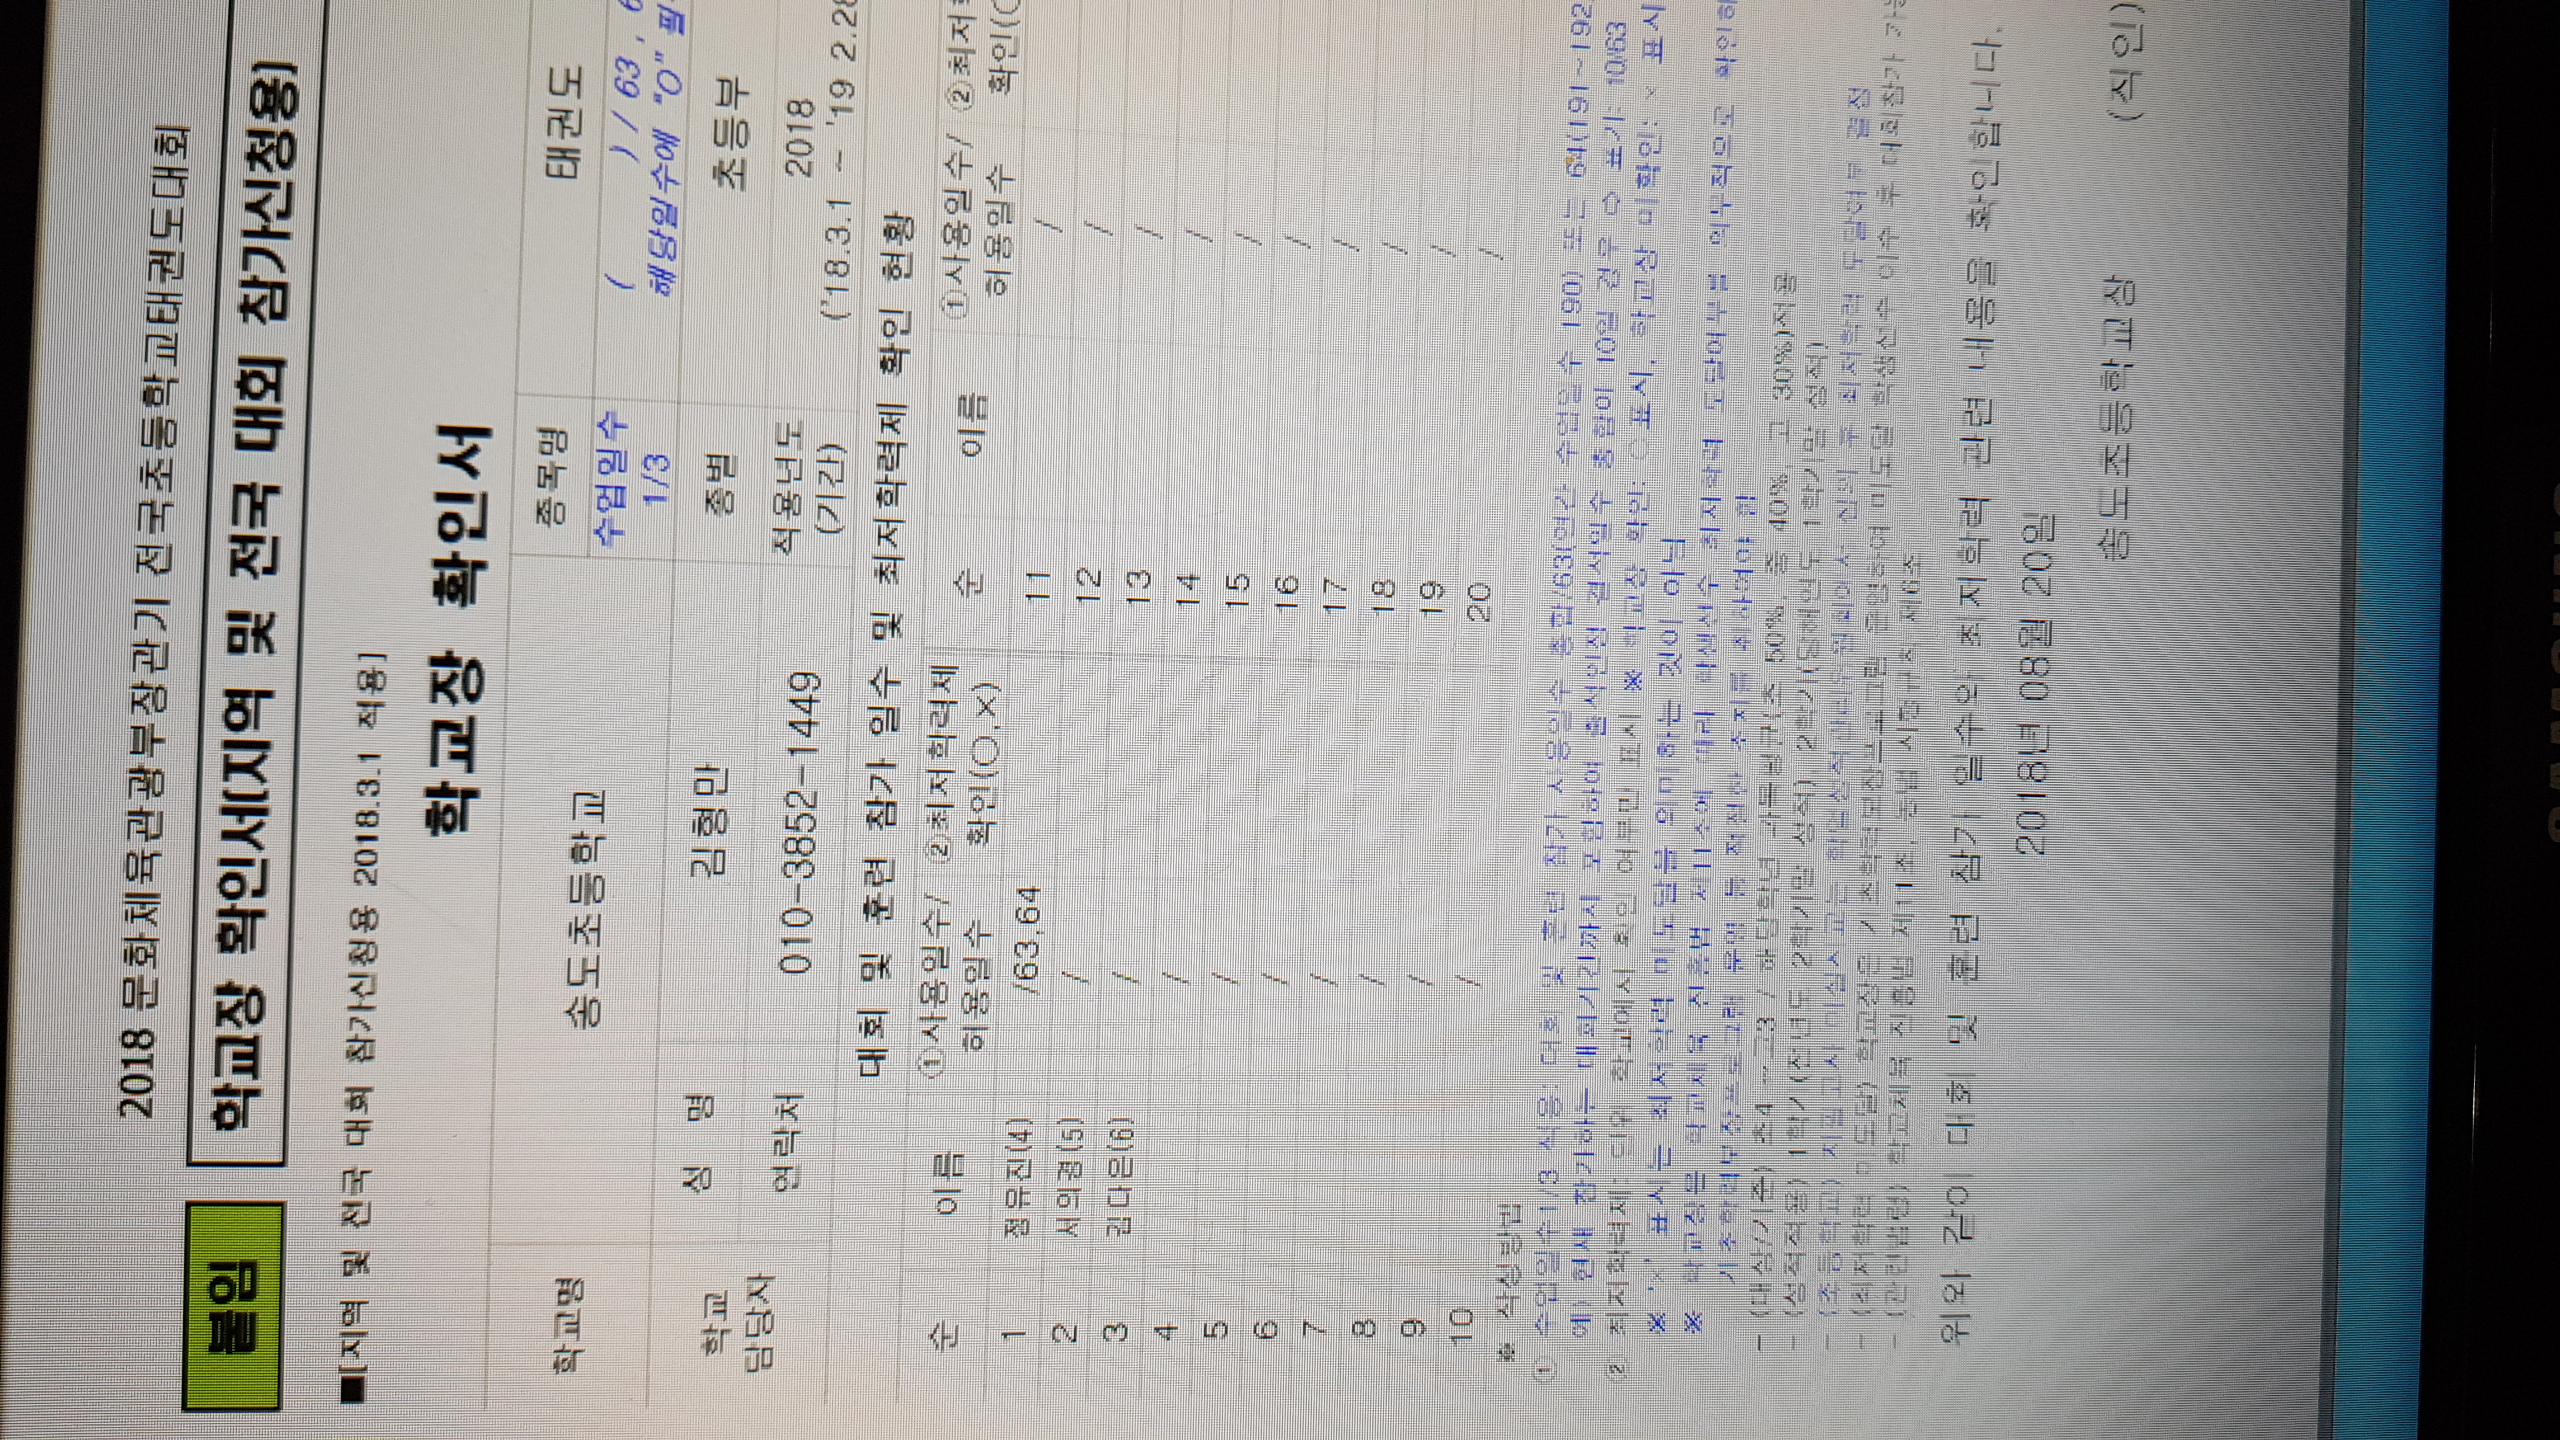 2018 문화체육관광부장관기 전국초등학교태권도대회
붙임
학교장 확인서(지역 및 전국 대회 참가신청용)
■[지역 및 전국 대회 참가신청용 2018.3.1 적용]
학교장 확인서
학교명 송도초등학교 종목명 태권도
수업일수 1/3 ( ) / 63 , 6
해당일수에 "O" 필
학교 담당자 성 명 김형만 종별 초등부
연락처 010-3852-1449 적용년도 (기간) 2018
('18.3.1 ~ '19 2.28
대회 및 훈련 참가 일수 및 최저학력제 확인 현황
순 이름 ①사용일수/허용일수 ②최저학력제 확인(○,×) 순 이름 ①사용일수/허용일수 ②최저 확인(
1 정유진(4) /63,64 11 /
2 서의경(5) / 12 /
3 김다은(6) / 13 /
4 / 14 /
5 / 15 /
6 / 16 /
7 / 17 /
8 / 18 /
9 / 19 /
10 / 20 /
※ 작성방법
① 수업일수1/3 적용: 대회 및 훈련 참가 사용일수 총합/63(연간 수업일수 190) 또는 64(191~192
예) 현재 참가하는 대회기간까지 포함하여 출석인정 결석일수 총합이 10일 경우 ⇨ 표기: 10/63
② 최저학력제: 단위 학교에서 확인 여부만 표시 ※ 학교장 확인: ○표시, 학교장 미확인: × 표시
※ '×' 표시는 최저학력 미도달을 의미하는 것이 아님
※ 학교장은 학교체육 진흥법 제11조에 따라 학생선수 최저학력 도달여부를 의무적으로 확인하
기초학력보장프로그램 운영 등 적절한 조치를 취하여야 함
- (대상/기준) 초4 ~ 고3 / 해당학년 과목평균(초 50%, 중 40%, 고 30%)적용
- (성적적용) 1학기(전년도 2학기말 성적), 2학기(당해연도 1학기말 성적)
- (초등학교) 지필고사 미실시교는
- (최저학력 미도달) 학교장은 기초학력보장프로그램 운영하여 미도달 학생선수 이수 후 대회참가 가능
- (관련법령) 학교체육 진흥법 제11조, 동법 시행규칙 제6조
위와 같이 대회 및 훈련 참가 일수와 최저학력 관련 내용을 확인합니다.
2018년 08월 20일
송도초등학교장 (직인)
SAMSUNG